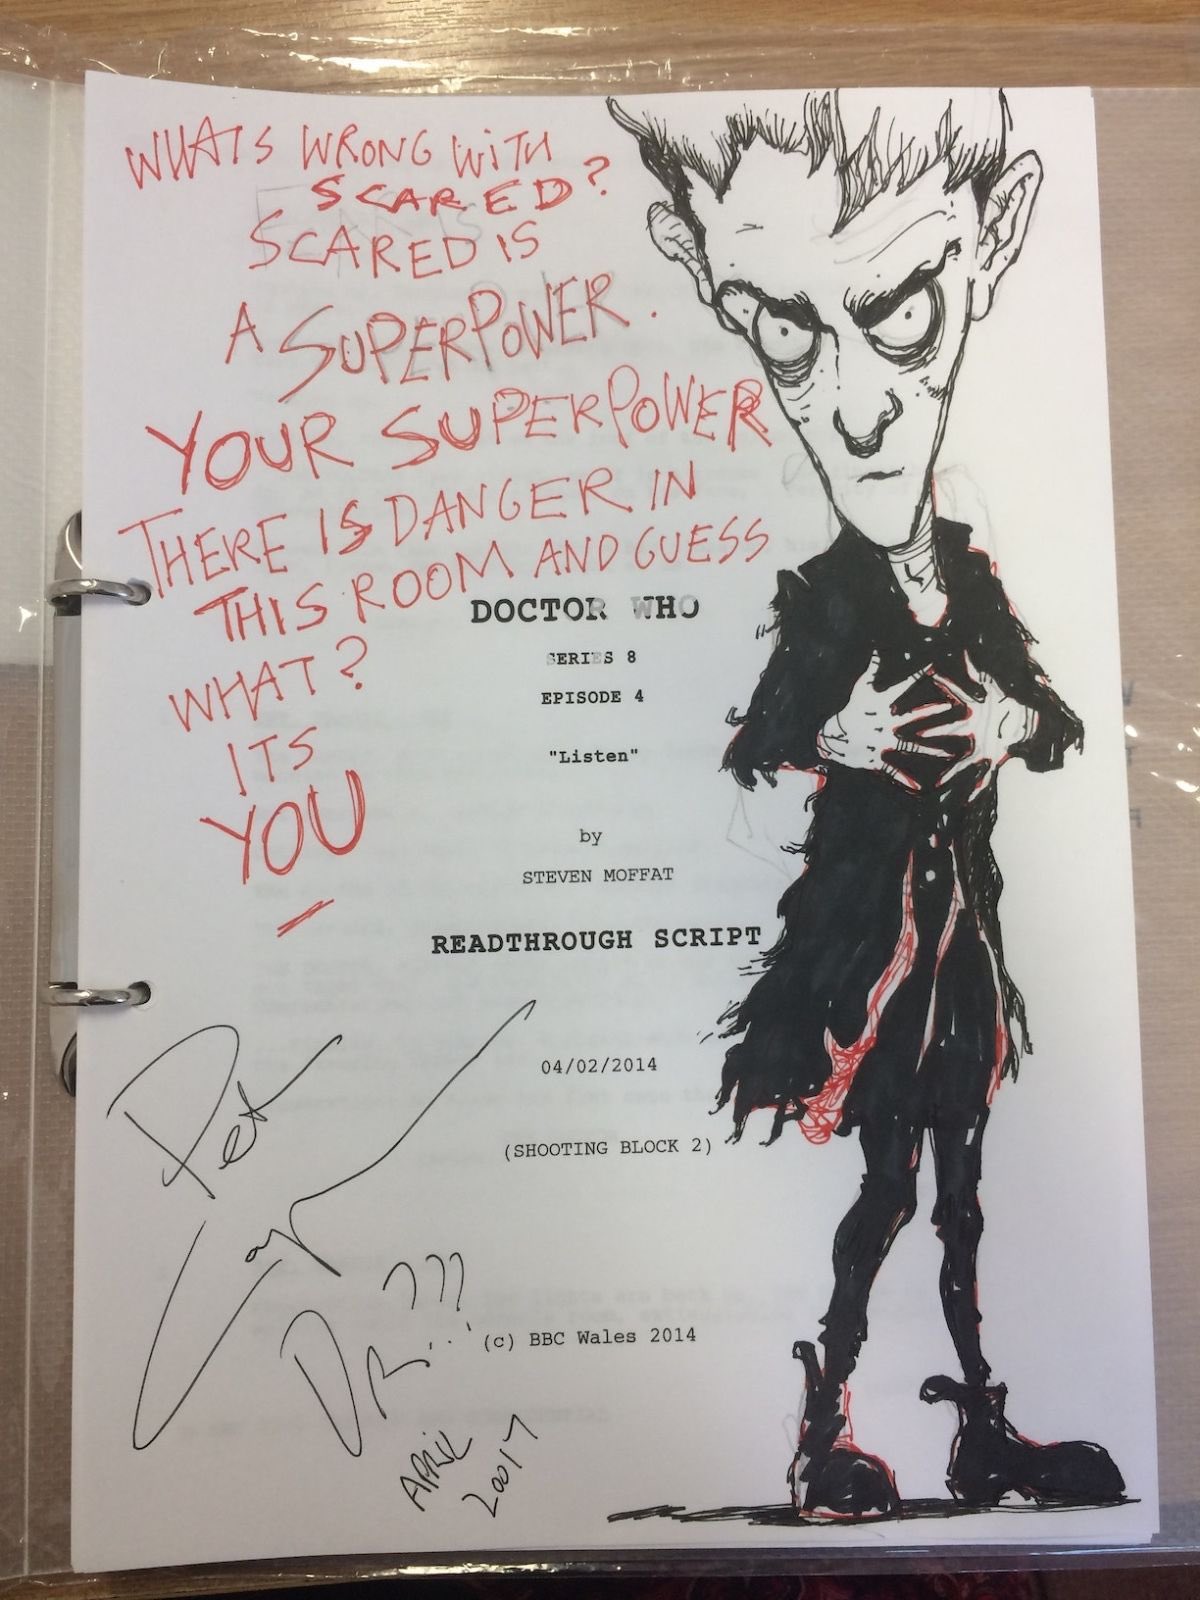 WHATS WRONG WITH
SCARED?
SCARED IS
A SUPERPOWER.
YOUR SUPERPOWER
THERE IS DANGER IN
THIS ROOM AND GUESS
WHAT?
ITS
YOU
DOCTOR WHO
SERIES 8
EPISODE 4
"Listen"
by
STEVEN MOFFAT
READTHROUGH SCRIPT
04/02/2014
(SHOOTING BLOCK 2)
Peter
Cap
DR...???
(c) BBC Wales 2014
APRIL
20017